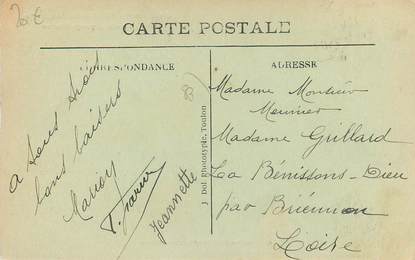 CARTE POSTALE
CORRESPONDANCE
ADRESSE
a tous trois
bons baisers
Marion
Jeannette
J Dol Phototypie, Toulon
Madame
Meunier
Madame Grillard
La Bénissons-Dieu
par Briennon
Loire